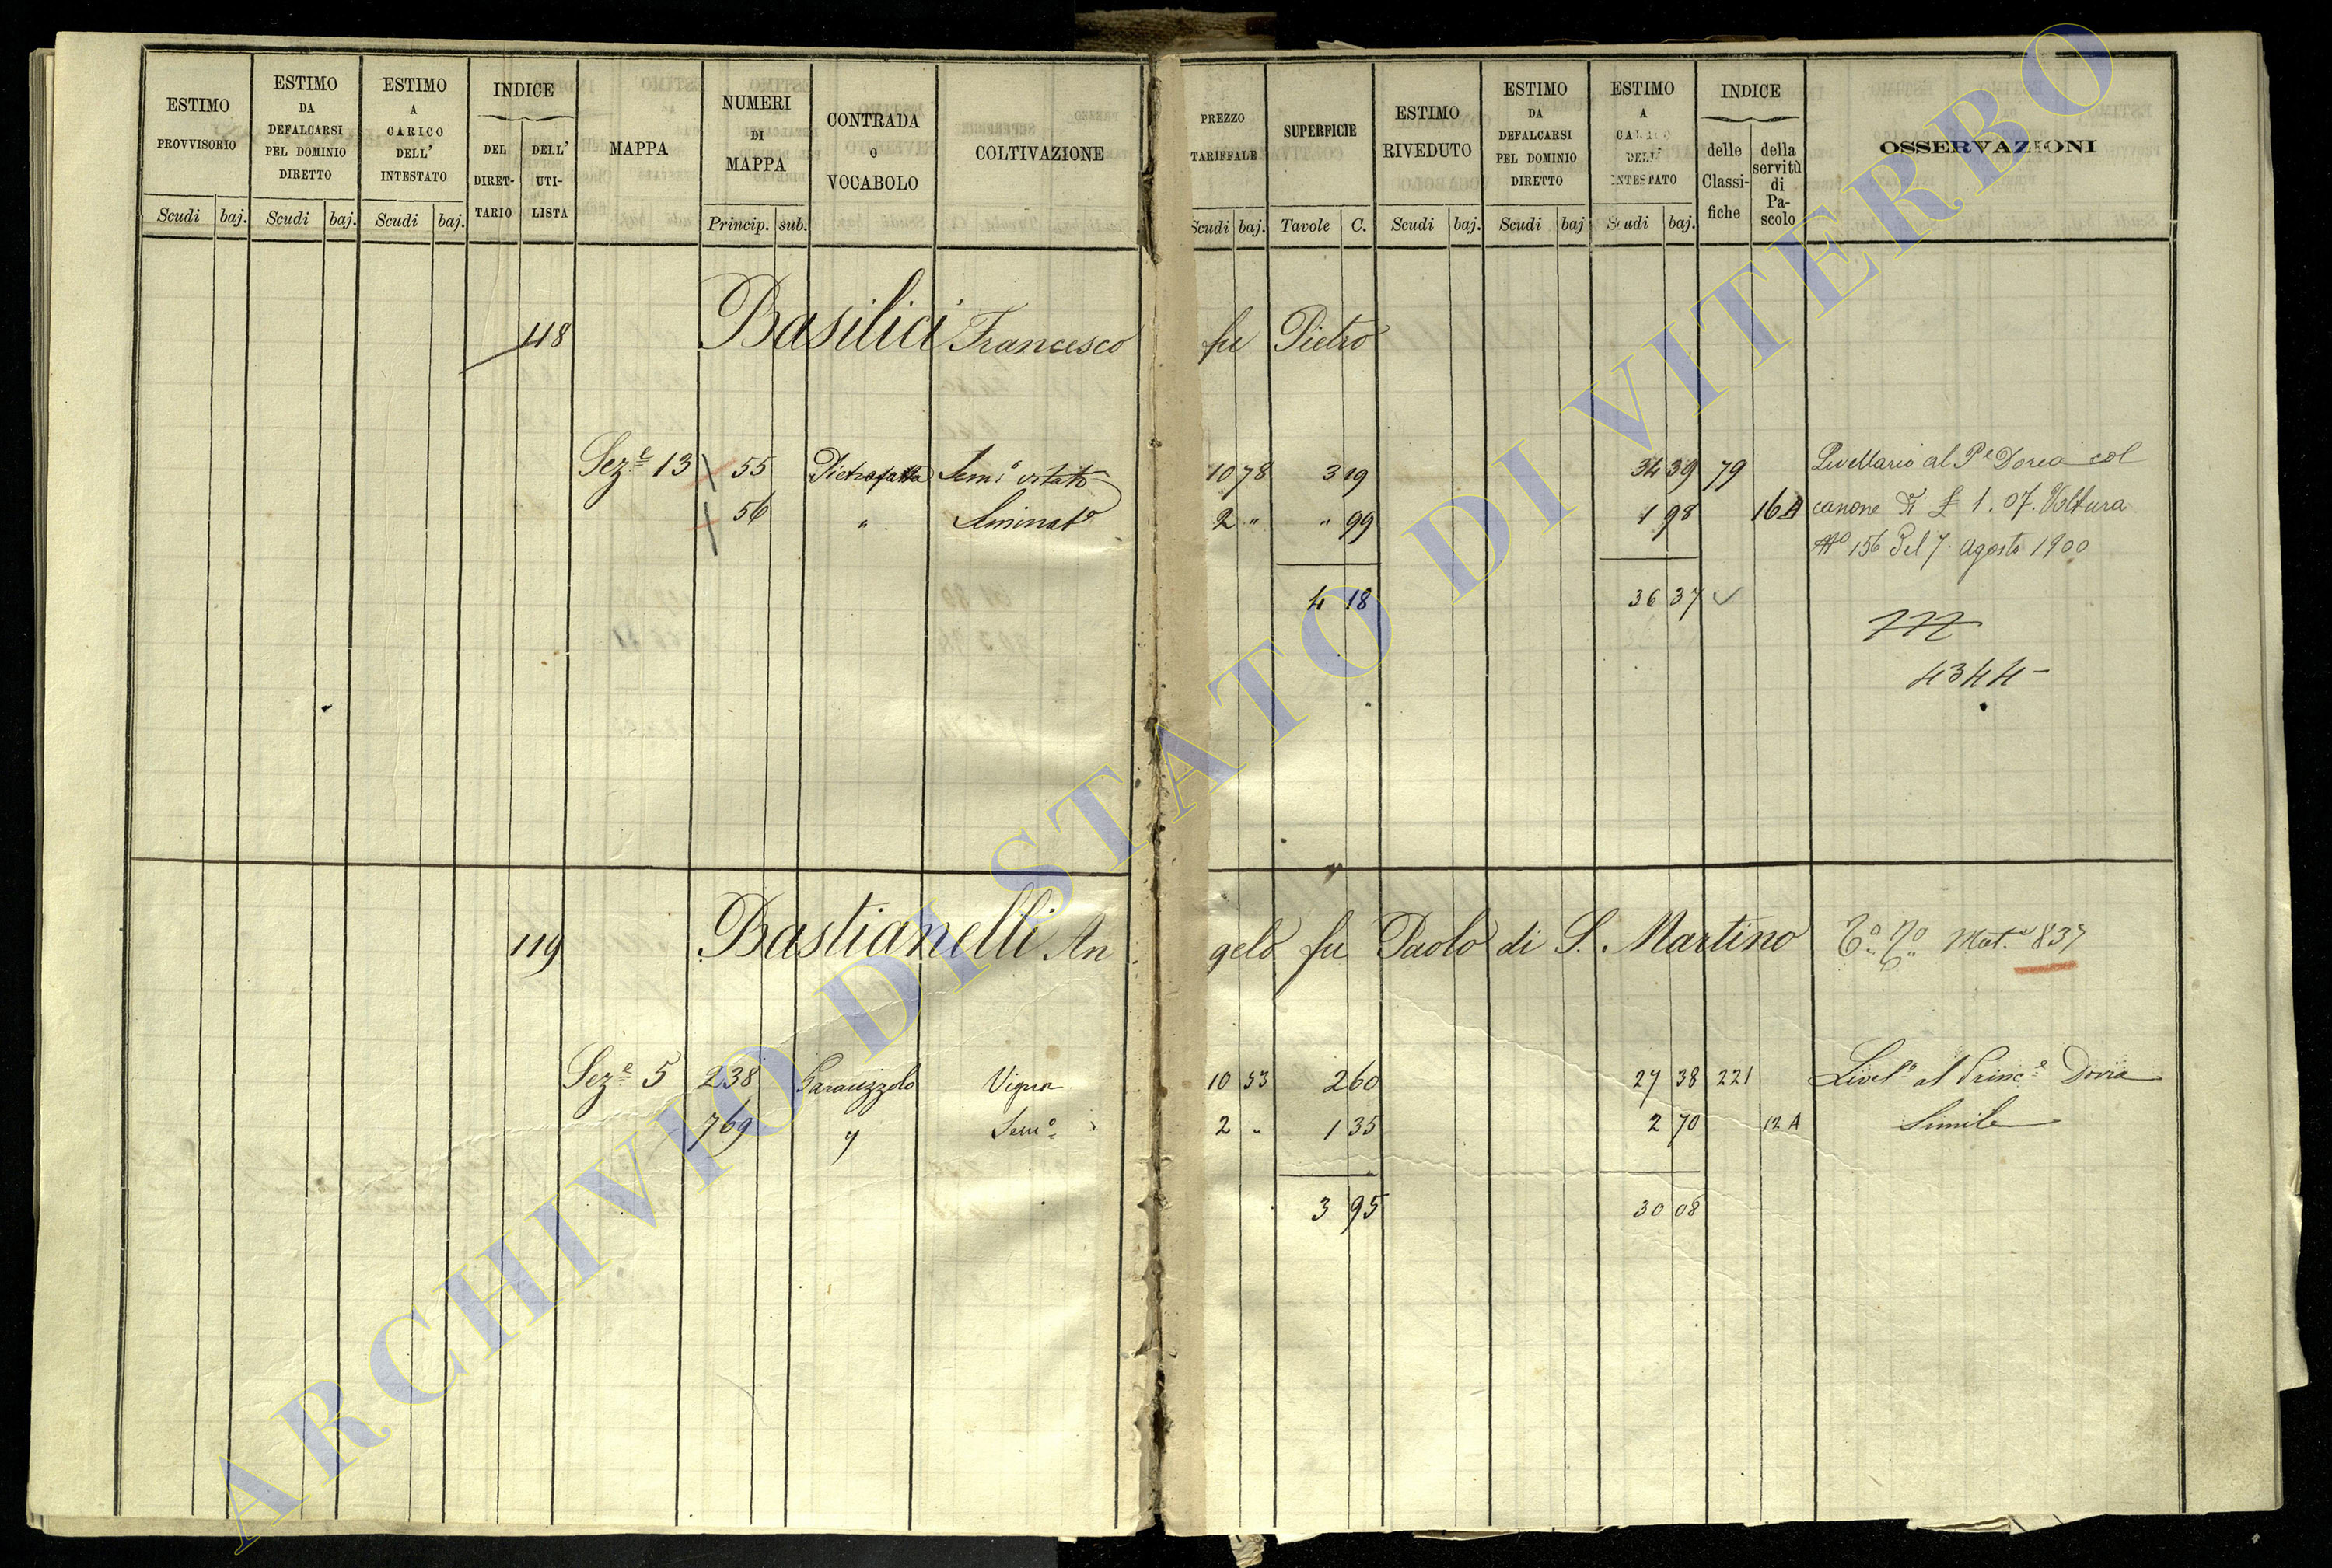 ESTIMO PROVVISORIO
Scudi baj.
ESTIMO DA DEFALCARSI PEL DOMINIO DIRETTO
Scudi baj.
ESTIMO A CARICO DELL' INTESTATO
Scudi baj.
INDICE
DEL DIRET-TARIO
DELL' UTI-LISTA
MAPPA
NUMERI DI MAPPA
Princip. sub.
CONTRADA O VOCABOLO
COLTIVAZIONE
PREZZO TARIFFALE
Scudi baj.
SUPERFICIE
Tavole C.
ESTIMO RIVEDUTO
Scudi baj.
ESTIMO DA DEFALCARSI PEL DOMINIO DIRETTO
Scudi baj
ESTIMO A CARICO DELL' INTESTATO
Scudi baj.
INDICE
delle Classi-fiche
della servitù di Pa-scolo
OSSERVAZIONI
118 Basilici Francesco fu Pietro
Sez.e 13 55 Pietrafatta Sem.o vitato 10 78 3 19 34 39 79 Livellario al P.e Dorea col
56 " Seminato 2 " " 99 1 98 16 A canone di £ 1.07. Voltura
No 156 del 7. Agosto 1900
4 18 36 37
777
4344
119 Bastianelli An gelo fu Paolo di S. Martino Mat. 837
Sez.e 5 238 Vigna 10 53 2 60 27 38 221 Livel.o al Princ.e Doria
769 " Sem.o 2 " 1 35 2 70 12 A Simile
3 95 30 08
ARCHIVIO DI STATO DI VITERBO